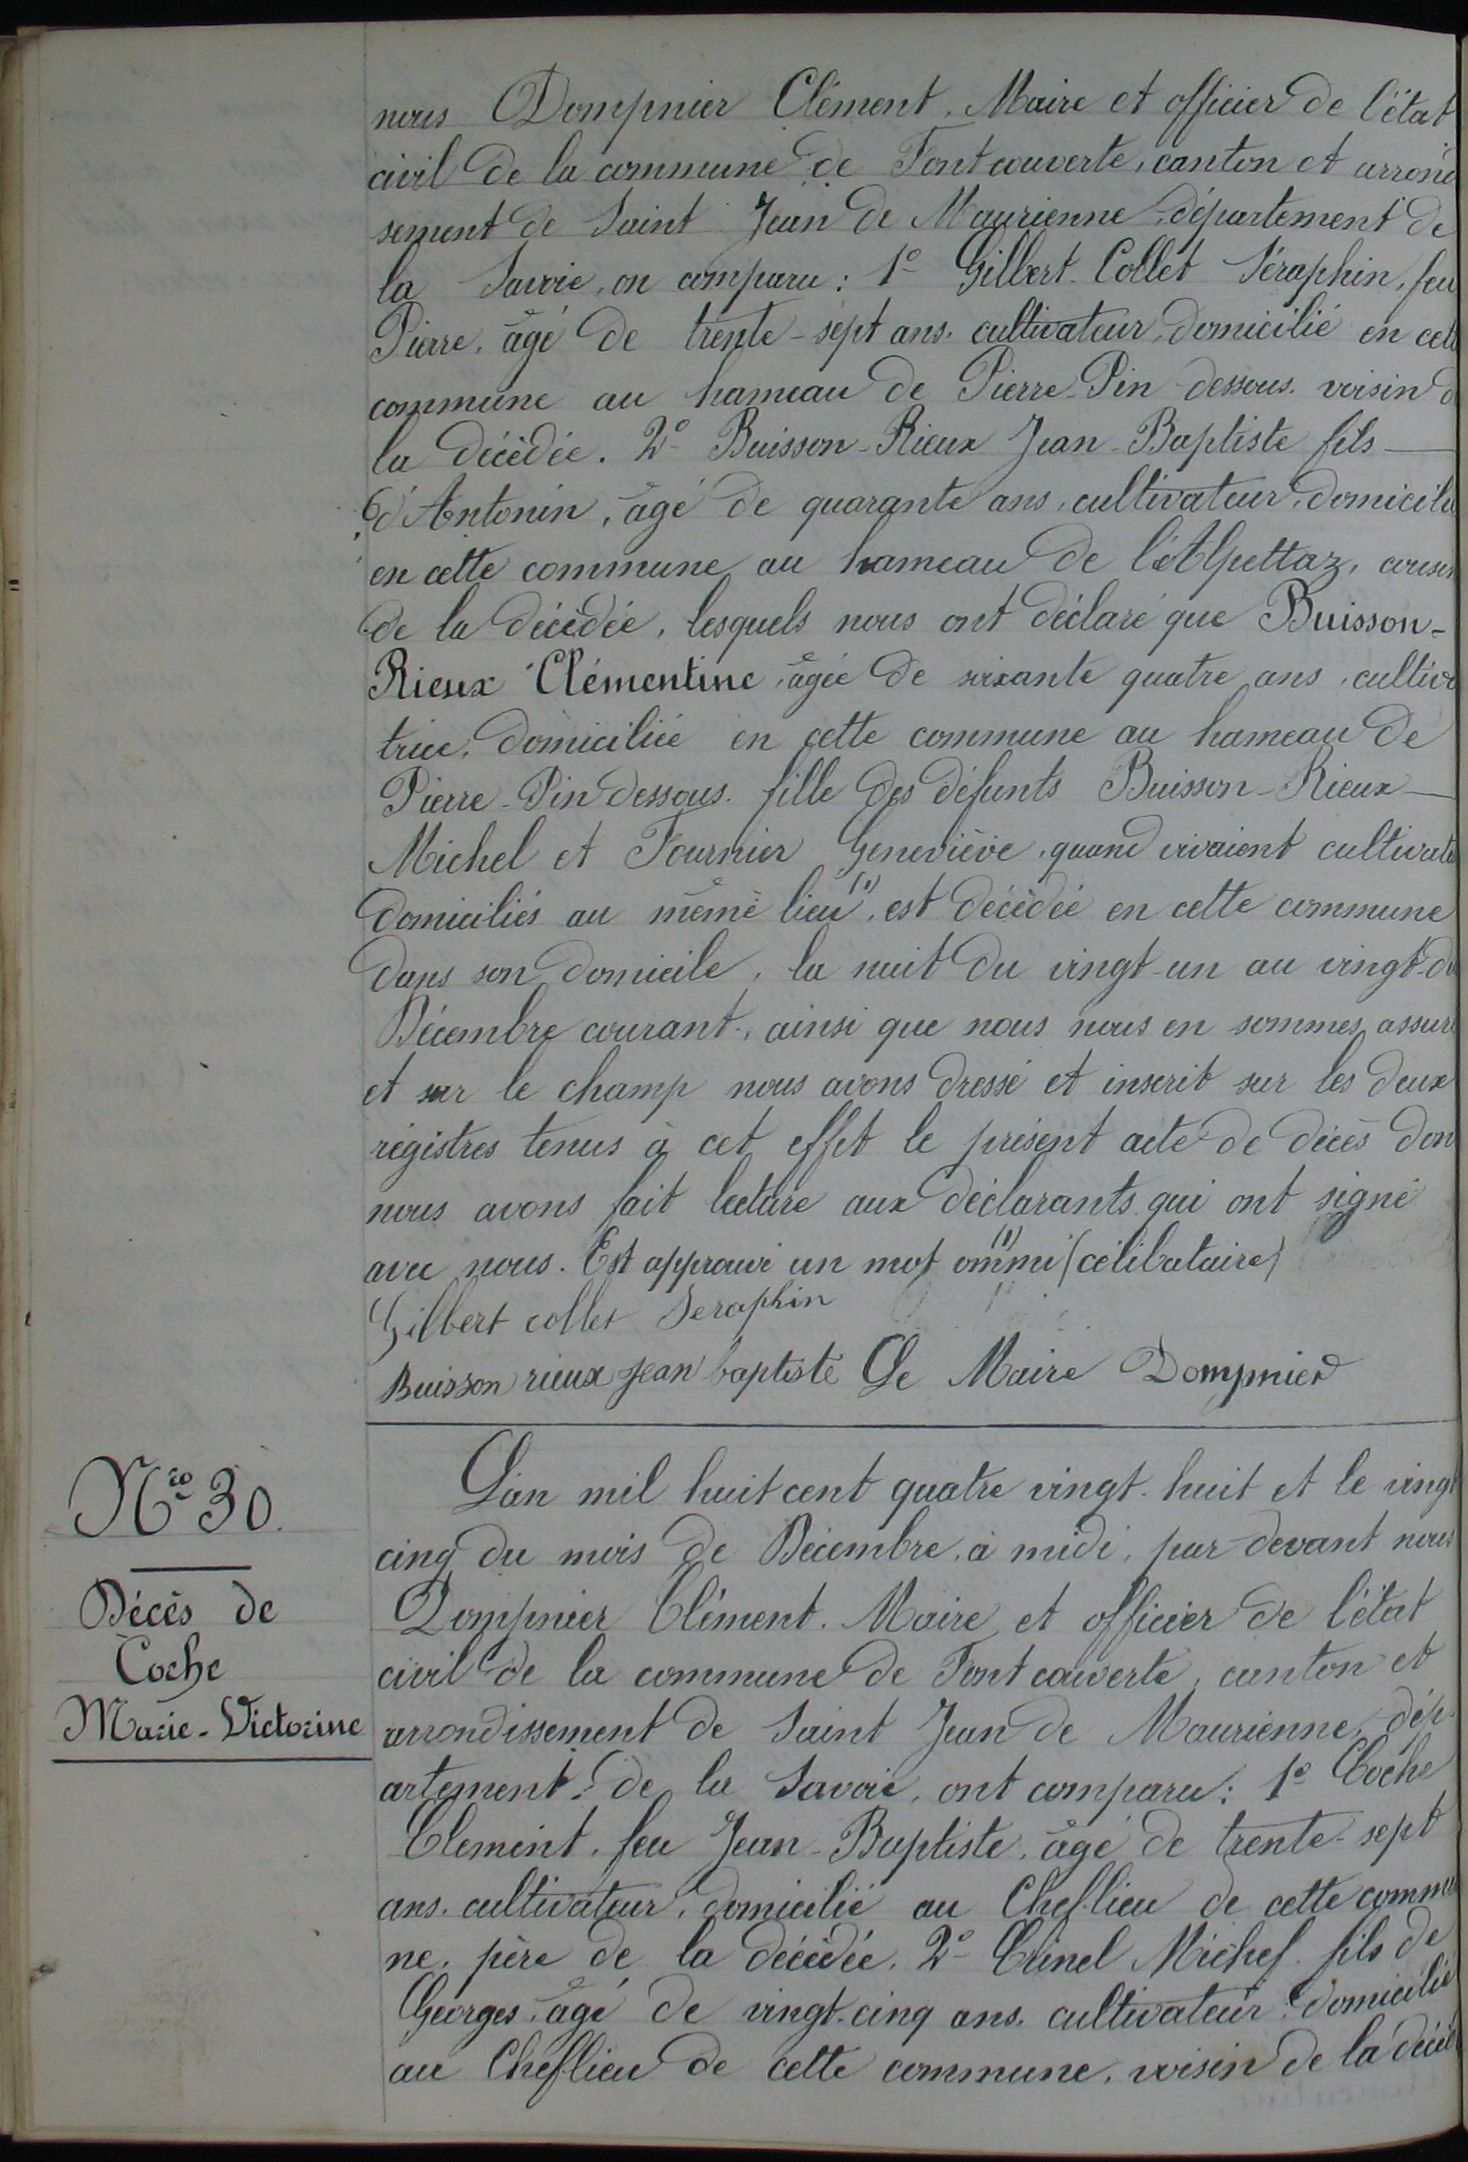 nous Dompnier Clément, Maire et officier de l'état
civil de la commune de Fontcouverte, canton et arrond
sement de Saint Jean de Maurienne, département de
la Savoie, on comparu : 1º Gilbert-Collet Séraphin, feu
Pierre, âgé de trente-sept ans, cultivateur, domicilié en cett
commune au hameau de Pierre-Pin dessous, voisin d
la décédée. 2º Buisson-Rieux Jean-Baptiste fils
d'Antonin, âgé de quarante ans, cultivateur, domicilié
en cette commune au hameau de l'Alpettaz, cousin
de la décédée, lesquels nous ont déclaré que Buisson-
Rieux Clémentine, âgée de soixante quatre ans, cultiva
trice, domiciliée en cette commune au hameau de
Pierre-Pin dessous, fille des défunts Buisson-Rieux
Michel et Fournier Geneviève, quand vivaient cultivate
domiciliés au même lieu (1), est décédée en cette commune
dans son domicile, la nuit du vingt-un au vingt-d
Décembre courant, ainsi que nous nous en sommes assuré
et sur le champ nous avons dressé et inscrit sur les deux
régistres tenus à cet effet le présent acte de décès don
nous avons fait lecture aux déclarants qui ont signé
avec nous. Est approuvé un mot ommi (1) (célibataire)
Gilbert collet Seraphin
Buisson rieux jean baptiste Le Maire Dompnier
Nro 30.
Décès de
Coche
Marie-Victorine
L'an mil huit cent quatre vingt-huit et le vingt
cinq du mois de Décembre, à midi, par-devant nous
Dompnier Clément, Maire et officier de l'état
civil de la commune de Fontcouverte, canton et
arrondissement de Saint Jean de Maurienne, dép-
artement de la Savoie, ont comparu : 1º Coche
Clément, feu Jean-Baptiste, âgé de trente-sept
ans, cultivateur, domicilié au Cheflieu de cette commu
ne, père de la décédée. 2º Clinel Michel fils de
Georges, âgé de vingt-cinq ans, cultivateur, domicilié
au Cheflieu de cette commune, voisin de la décéd